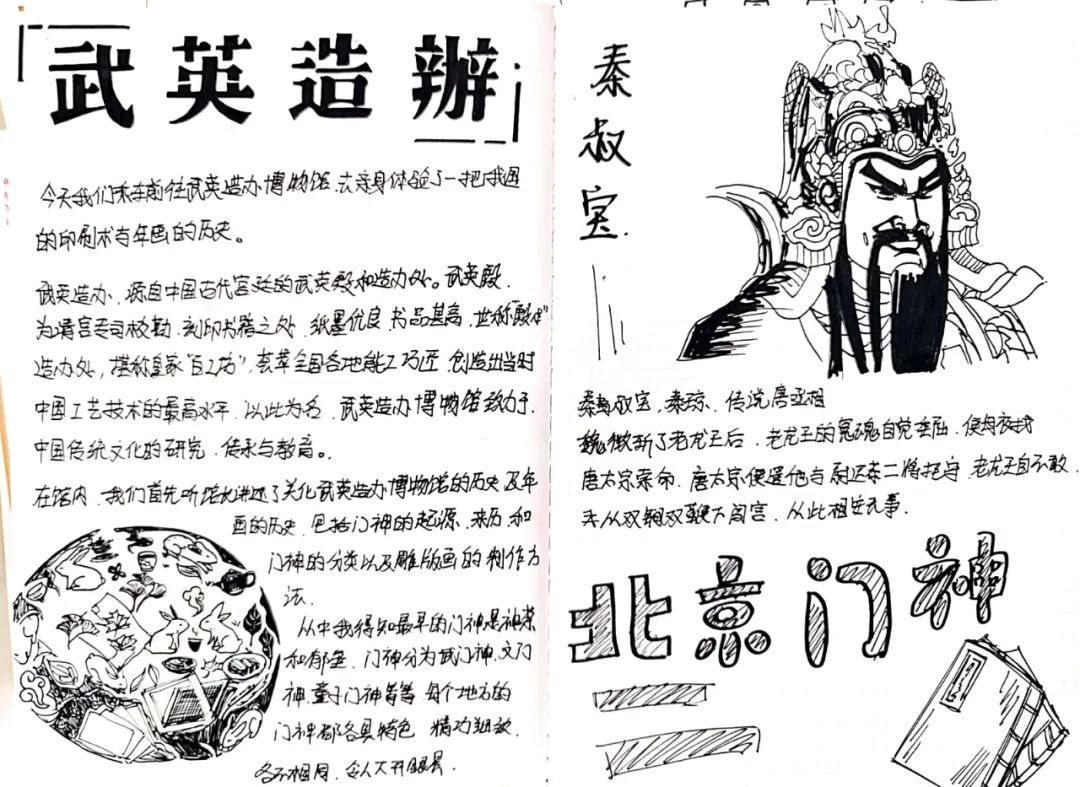 武英造辦
今天我们乘车前往武英造办博物馆,去亲身体验了一把我国
的印刷术与年画的历史。
武英造办,源自中国古代宫廷的武英殿和造办处。武英殿,
为清宫专司校勘,刻印书籍之处,纸墨优良,书品甚高,世称“殿本”
造办处,堪称皇家“百工坊”,荟萃全国各地能工巧匠,创造出当时
中国工艺技术的最高水平,以此为名,武英造办博物馆致力于,
中国传统文化的研究,传承与教育。
在馆内,我们首先听馆长讲述了关于武英造办博物馆的历史及年
画的历史,包括门神的起源,来历,和
门神的分类以及雕版画的制作方
法.
从中我得知最早的门神是神荼
和郁垒,门神分为武门神,文门
神,童子门神等等,每个地方的
门神都各具特色,精巧
各不相同,令人大开眼界.
秦叔宝.
秦叔宝,秦琼,传说唐丞相
魏徵斩了老龙王后,老龙王的冤魂自觉委屈,便每夜找
唐太宗索命,唐太宗便遣他与尉迟恭二将把守,老龙王自不敢
从此相安无事.
北京门神